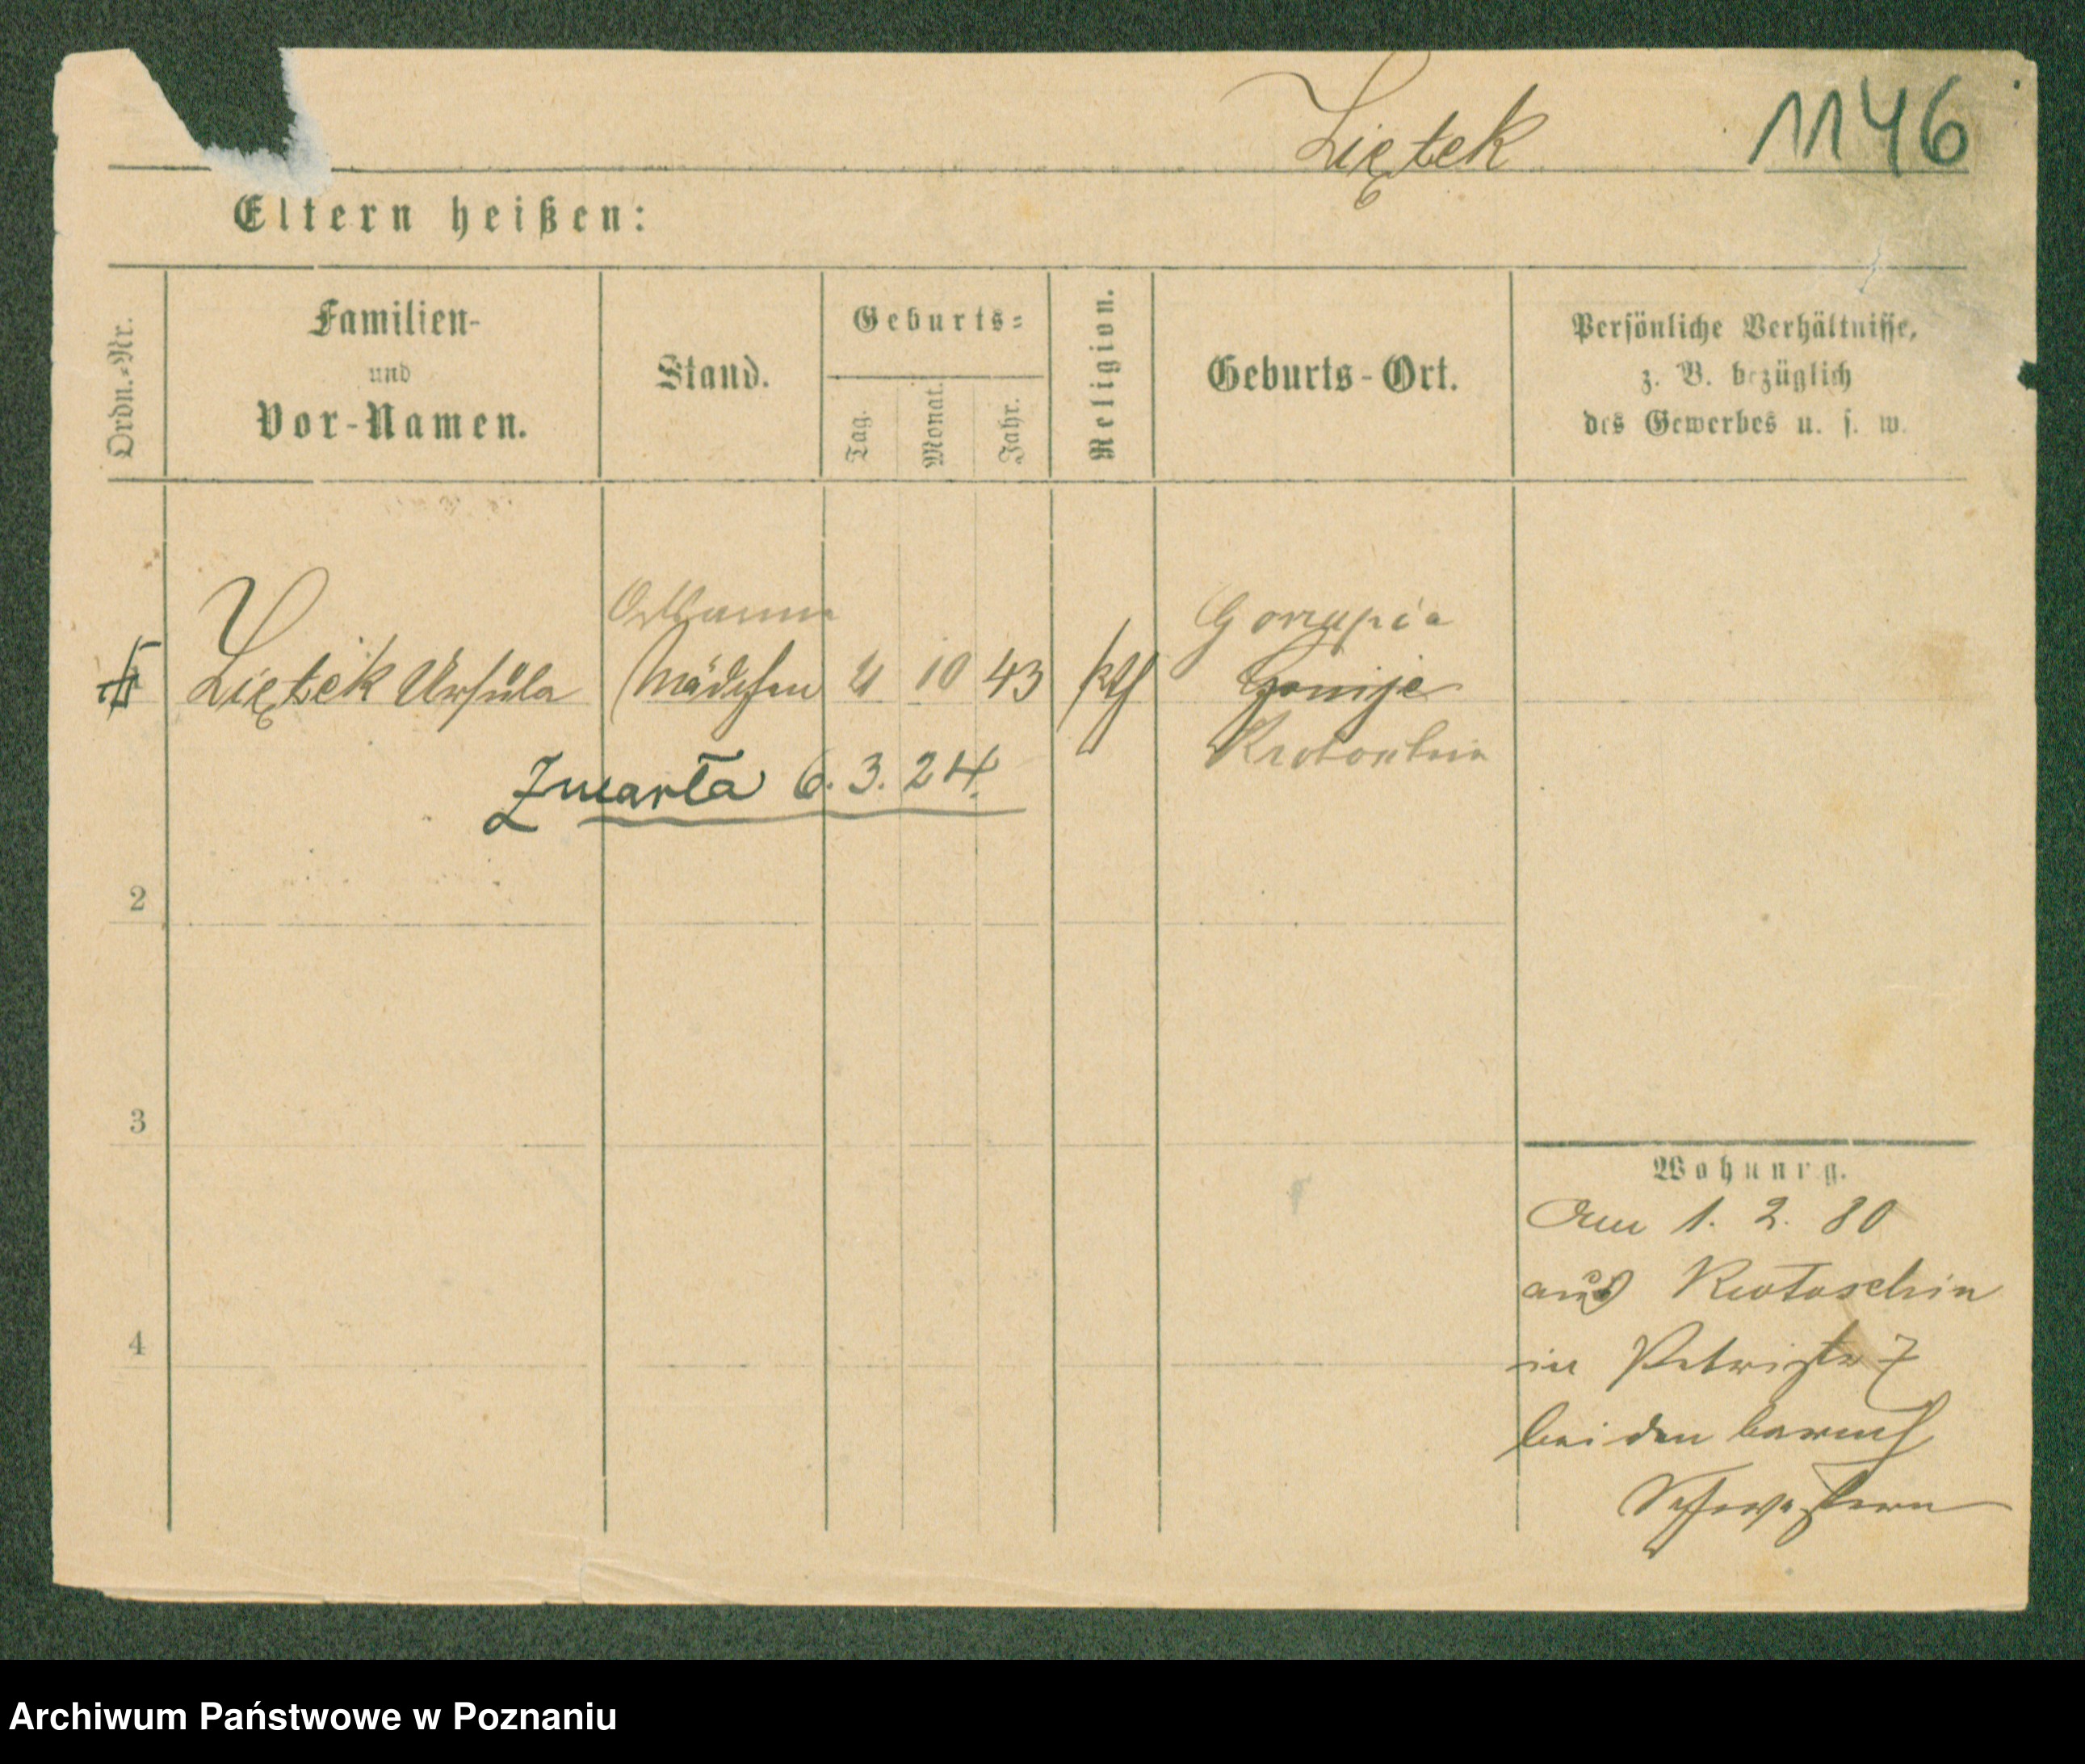 Ziętek 1146
Eltern heißen:
Ordn.-Nr.
Familien-
und
Vor-Namen.
Stand.
Geburts-
Tag.
Monat.
Jahr.
Religion.
Geburts-Ort.
Persönliche Verhältnisse,
z. B. bezüglich
des Gewerbes u. s. w.
Gorzupia
Ziętek Ursula Mädchen 21 10 43 kth
Krotoschin
Zmarła 6.3.24.
2
3
Wohnung.
Am 1. 2. 80
aus Krotoschin
4
in Petristr 7
bei den barmh
Schwestern
Archiwum Państwowe w Poznaniu